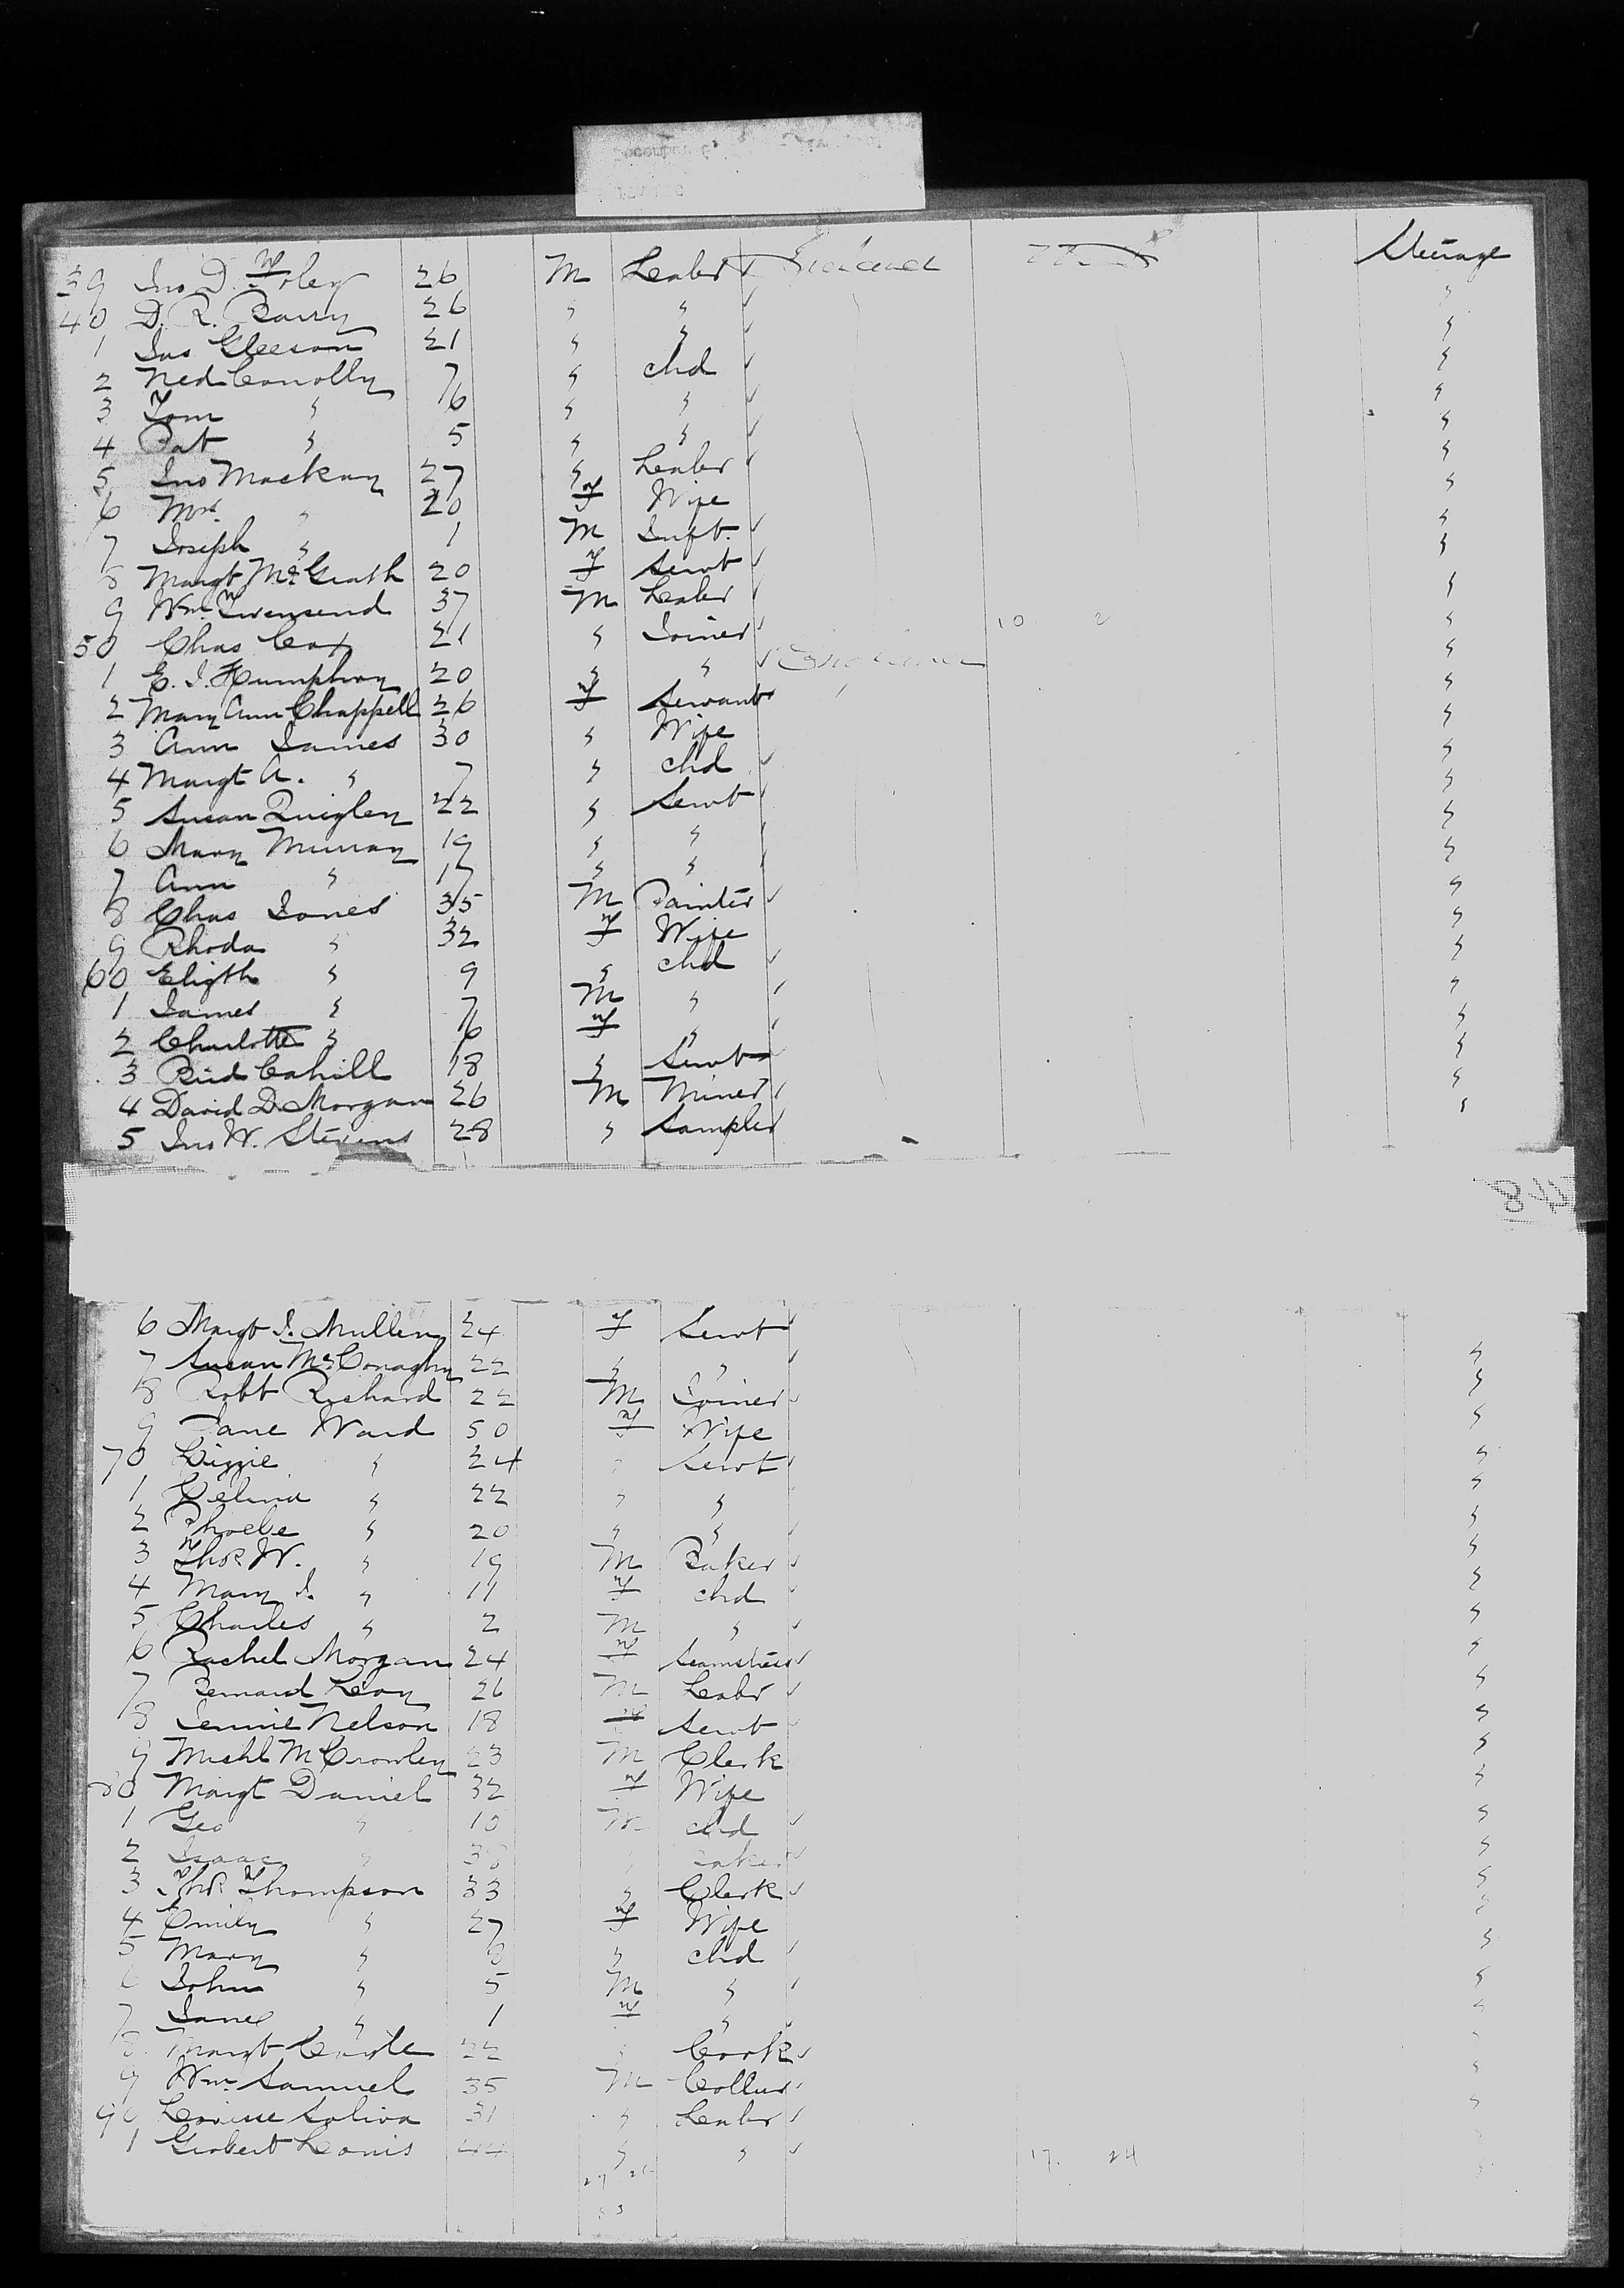 39 Jno D. Foley 26 M Labr Ireland Steerage
40 D. R. Barry 26 " " "
1 Jas Gleeson 21 " " "
2 Ned Conolly 7 " chd "
3 Tom " 6 " " "
4 Pat " 5 " " "
5 Jno Mackay 27 " Labr "
6 Mrs. " 20 F Wife "
7 Joseph " 1 M Inft. "
8 Margt McGrath 20 F Servt "
9 Wm. Townsend 37 M Labr "
50 Chas Cox 21 " Joiner 10 2 "
1 E. J. Humphrey 20 " " England "
2 Mary Ann Chappell 26 F Servant "
3 Ann James 30 " Wife "
4 Margt A. " 7 " chd "
5 Susan Quigley 22 " Servt "
6 Mary Murray 19 " " "
7 Ann " 17 " " "
8 Chas Jones 35 M Painter "
9 Rhoda " 32 F Wife "
60 Eligth " 9 " chd "
1 James " 7 M " "
2 Charlotte " 6 F " "
3 Brid Cahill 18 " Servt "
4 David D. Morgan 26 M Miner "
5 Jno W. Stevens 28 " Sampler "
6 Margt J. Mullen 24 F Servt
7 Susan McConaghy 22 " " "
8 Robt Richard 22 M Joiner "
9 Jane Ward 50 F Wife "
70 Lizzie " 24 " Servt "
1 Selina " 22 " " "
2 Phoebe " 20 " " "
3 Thos W. " 19 M Baker "
4 Mary J. " 11 F chd "
5 Charles " 2 M " "
6 Rachel Morgan 24 F Seamstress "
7 Bernard Leoy 26 M Labr "
8 Jennie Nelson 18 F Servt "
9 Michl McCrowley 23 M Clerk "
80 Margt Daniel 32 F Wife "
1 Geo " 10 M chd "
2 Isaac " 38 " "
3 Thos Thompson 33 " Clerk "
4 Emily " 27 F Wife "
5 Mary " " chd "
6 John " 5 M " "
7 Jane " 1 F " "
8 Margt 22 " Cook "
9 Wm. Samuel 35 M Collier "
90 Soliva 31 " Labr "
1 Louis 44 " " 17. 24